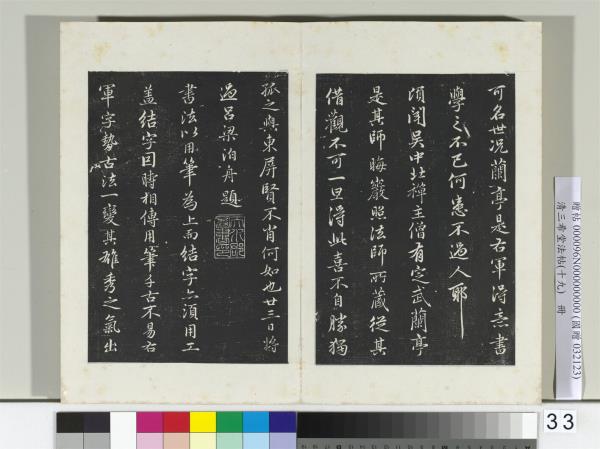 可名世況蘭亭是右軍得意書
學之不已何患不過人耶
頃聞吳中北禪主僧有定武蘭亭
是其師晦巖照法師所藏從其
借觀不可一旦得此喜不自勝獨
孤之與東屏賢不肖何如也廿三日將
過呂梁泊舟題
書法以用筆為上而結字亦須用工
蓋結字因時相傳用筆千古不易右
軍字勢古法一變其雄秀之氣出
贈帖 000096N000000000 (國贈 032123)
清三希堂法帖(十九) 冊
33